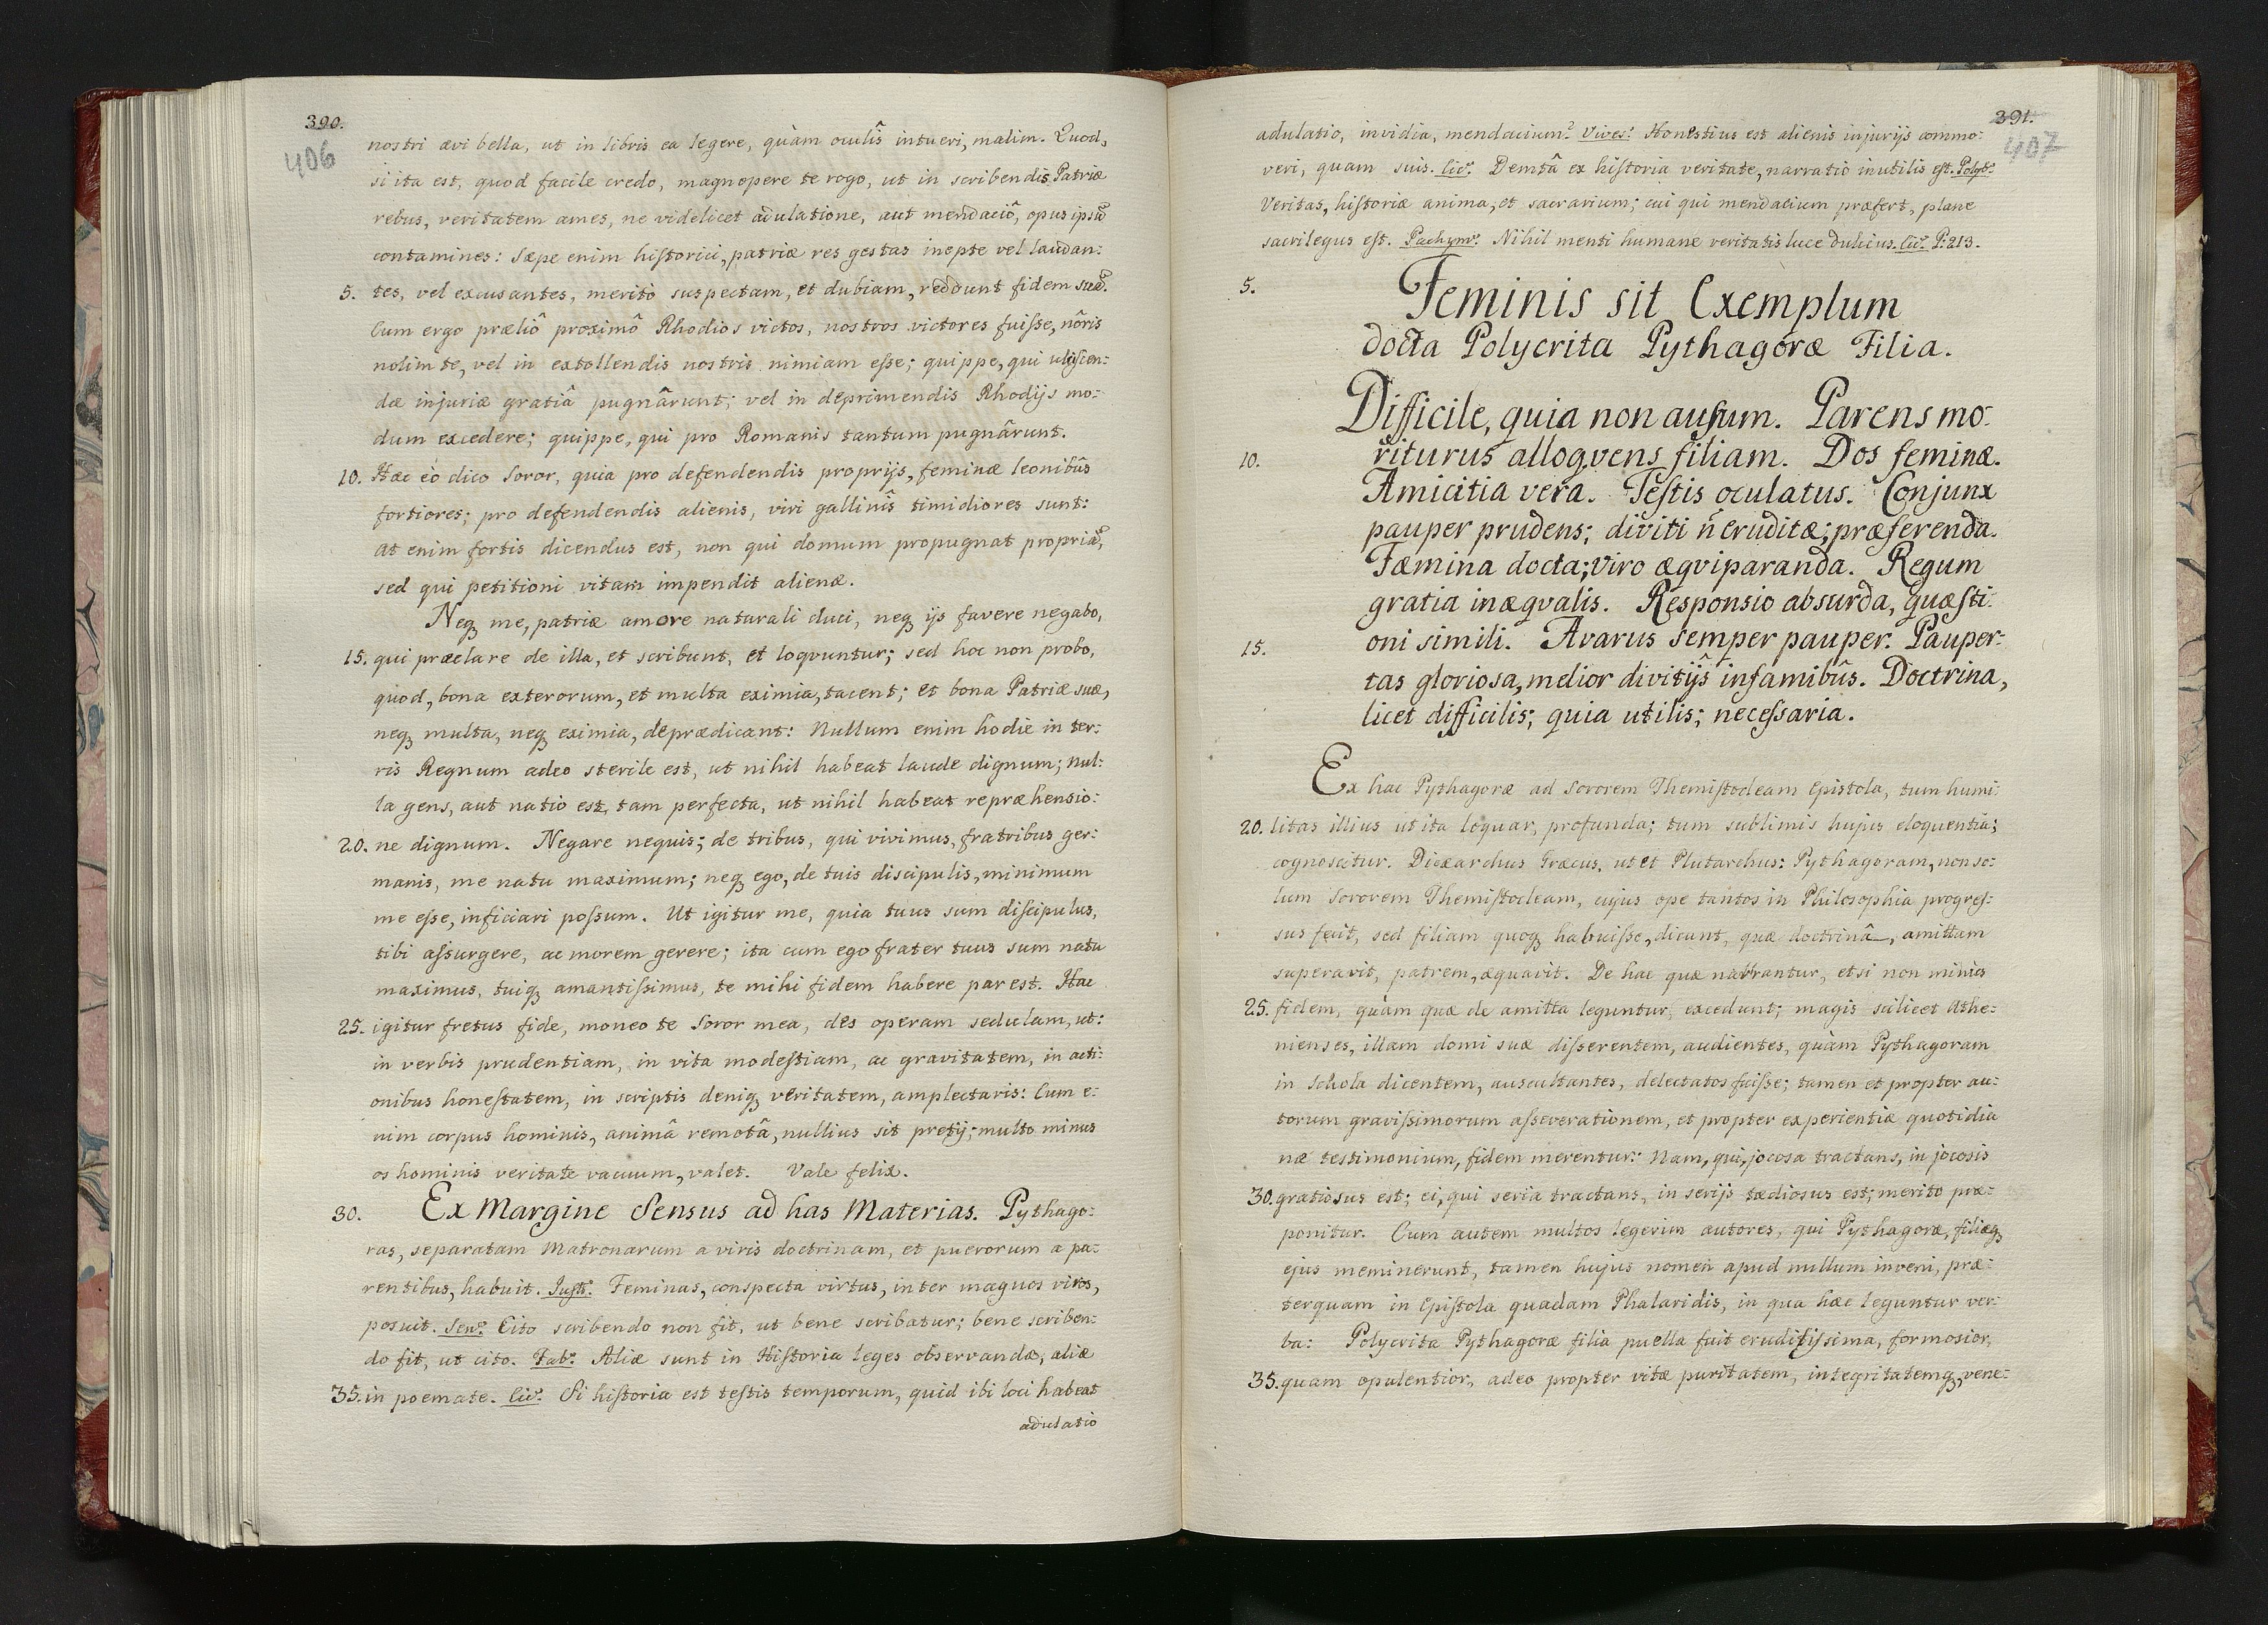 390.
406
nostri ævi bella, ut in libris ea legere, quàm oculîs intueri, malim. Quod,
si ita est, quod facile credo, magnopere te rogo, ut in scribendis Patriæ
rebus, veritatem ames, ne videlicet adulatione, aut mendaciô, opus ipsũ
contamines: Sæpe enim historici, patriæ res gestas inepte vel laudan:
5. tes, vel excusantes, meritò suspectam, et dubiam, reddunt fidem suã.
Cum ergo præliô proximô Rhodios victos, nostros victores fuisse, nôris
nolim te, vel in extollendis nostris nimiam esse; quippe, qui ulciscen:
dæ injuriæ gratiâ pugnârunt; vel in deprimendis Rhodijs mo:
dum excedere; quippe, qui pro Romanis tantum pugnârunt.
10. Hæc eò dico Soror, quia pro defendendis proprijs, feminæ leonibûs
fortiores; pro defendendis alienis, viri gallinîs timidiores sunt:
at enim fortis dicendus est, non qui domum propugnat propriã,
sed qui petitioni vitam impendit alienæ.
Neq3 me, patriæ amore naturali duci, neq3 ijs favere negabo,
15. qui præclare de illa, et scribunt, et loqvuntur; sed hoc non probo,
quod, bona exterorum, et multa eximia, tacent; et bona Patriæ suæ,
neq3 multa, neq3 eximia, deprædicant: Nullum enim hodie in ter:
ris Regnum adeo sterile est, ut nihil habeat laude dignum; nul:
la gens, aut natio est, tam perfecta, ut nihil habeat repræhensio:
20. ne dignum. Negare nequis; de tribus, qui vivimus, fratribus ger:
manis, me natu maximum; neq3 ego, de tuis discipulis, minimum
me esse, inficiari possum. Ut igitur me, quia tuus sum discipulus,
tibi assurgere, ac morem gerere; ita cum ego frater tuus sum natu
maximus, tuiq3 amantissimus, te mihi fidem habere par est. Hac
25. igitur fretus fide, moneo te Soror mea, des operam sedulam, ut:
in verbis prudentiam, in vita modestiam, ac gravitatem, in acti:
onibus honestatem, in scriptis deniq3 veritatem, amplectaris: Cum e:
nim corpus hominis, animâ remotâ, nullius sit pretij; multo minus
os hominis veritate vacuum, valet. Vale felix.
30. Ex Margine Sensus ad has Materias. Pythago:
ras, separatam Matronarum a viris doctrinam, et puerorum a pa:
rentibus, habuit. Just: Feminas, conspecta virtus, inter magnos viros,
posuit. Sen: Cito scribendo non fit, ut bene scribatur; bene scriben:
do fit, ut cito. Fab: Aliæ sunt in Historia leges observandæ, aliæ
35. in poemate. Cic: Si historia est testis temporum, quid ibi loci habeat
adulatio
391.
407
adulatio, invidia, mendacium? Vives: Honestius est alienis injurijs commo:
veri, quam suis. Cic: Demtâ ex historia veritate, narratio inutilis est. Polyb:
Veritas, historiæ anima, et sacrarium; cui qui mendacium præfert, plane
sacrilegus est. Pachym: Nihil menti humane veritatis luce dulcius. Cic: P: 213.
5. Feminis sit Exemplum
docta Polycrita Pythagóræ Filia.
Difficile, quia non ausum. Parens mo:
10. riturus alloqvens filiam. Dos feminæ.
Amicitia vera. Testis oculatus. Conjunx
pauper prudens; diviti ñ eruditæ; præferenda.
Fæmina docta; viro æqviparanda. Regum
gratia inæqvalis. Responsio absurda, quæsti:
15. oni simili. Avarus semper pauper. Pauper:
tas gloriosa, melior divitijs infamibûs. Doctrina,
licet difficilis; quia utilis; necessaria.
Ex hac Pythagoræ ad Sororem Themistocleam Epistola, tum humi:
20. litas illius ut ita loquar, profunda; tum sublimis hujus eloquentia;
cognoscitur. Dicæarchus Græcus, ut et Plutarchus: Pythagoram, non so:
lum Sororem Themistocleam, cujus ope tantos in Philosophia progres:
sus fecit, sed filiam quoq3 habuisse, dicunt, quæ doctrinâ, amittam
superavit, patrem, æquavit. De hac quæ narrantur, etsi non minus
25. fidem, quàm quæ de amitta leguntur, excedunt; magis scilicet Athe:
nienses, illam domi suæ disserentem, audientes, quàm Pythagoram
in Schola dicentem, auscultantes, delectatos fuisse; tamen et propter au:
torum gravissimorum asseverationem, et propter experientiæ quotidia
næ testimonium, fidem merentur: Nam, qui, jocosa tractans, in jocosis
30. gratiosus est; ei, qui seria tractans, in serijs tædiosus est; merito præ:
ponitur. Cum autem multos legerim autores, qui Pythagoræ, filiæq3
ejus meminerunt, tamen hujus nomen apud nullum inveni, præ:
terquam in Epistola quadam Phalaridis, in qua hæc leguntur ver:
ba: Polycrita Pythagoræ filia puella fuit eruditissima, formosior,
35. quam opulentior, adeo propter vitæ puritatem, integritatemq3, vene: